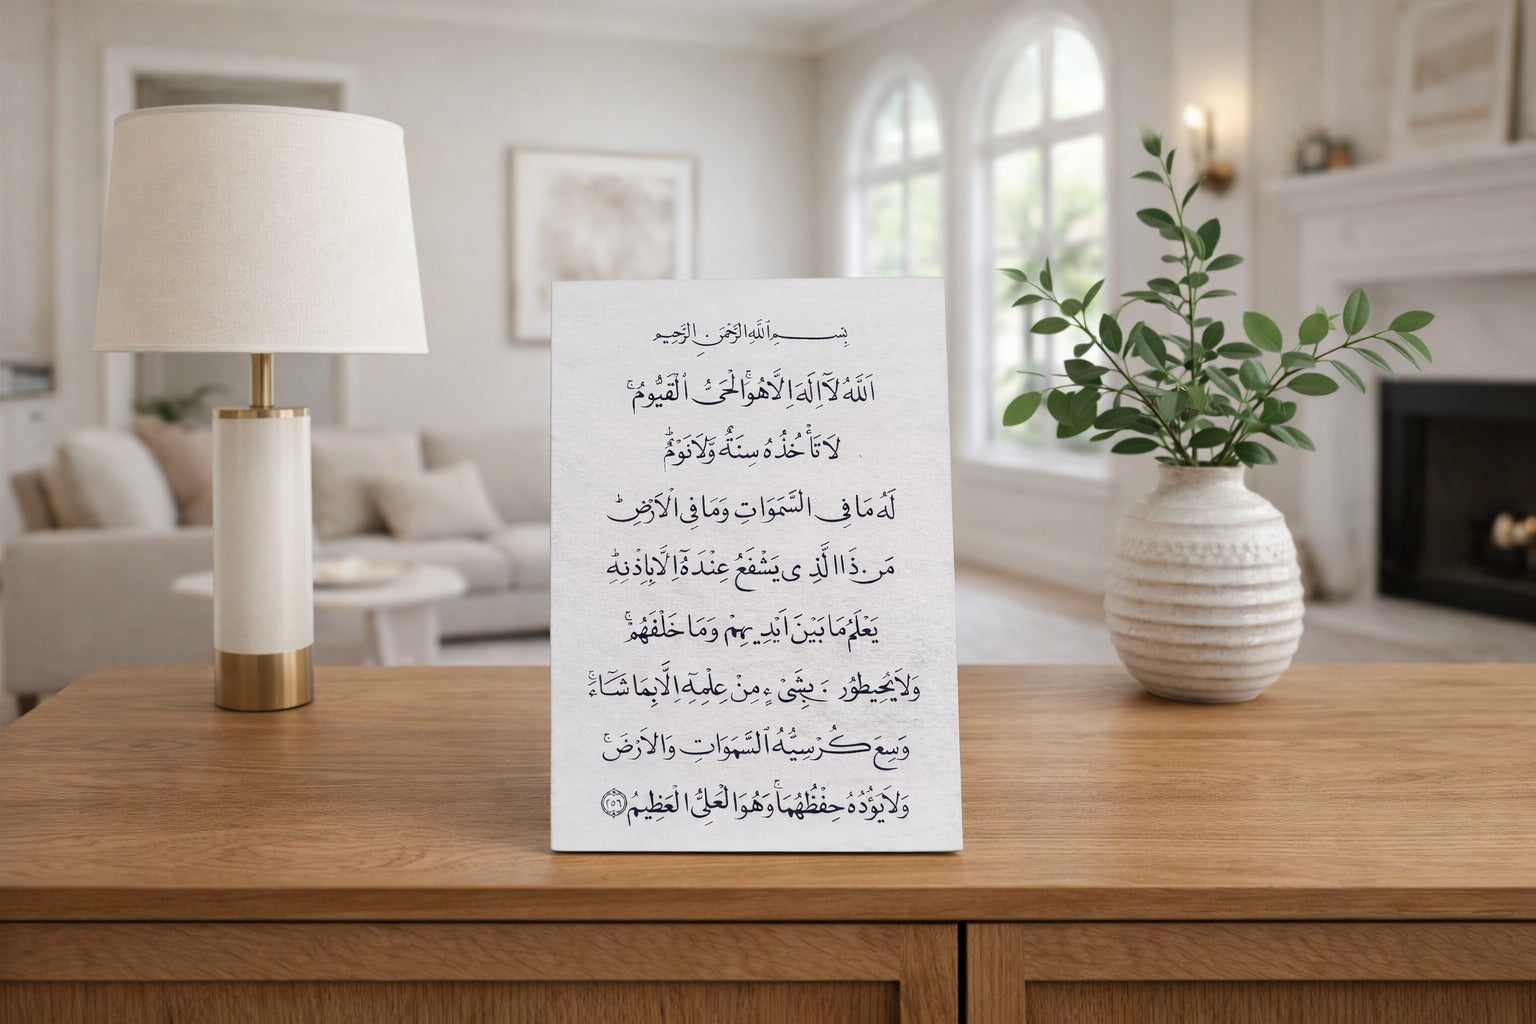 بِسْمِ ٱللَّهِ الرَّحْمَنِ الرَّحِيمِ
اَللَّهُ لَآ اِلَهَ اِلَّا هُوَۚ الْحَىُّ ٱلْقَيُّومُۚ
لَا تَأْخُذُهُ سِنَةٌ وَّلَا نَوْمٌؕ
لَهُ مَا فِى السَّمَوَاتِ وَمَا فِى الْاَرْضِؕ
مَن ذَا الَّذِى يَشْفَعُ عِنْدَهُٓ اِلَّا بِاِذْنِهِؕ
يَعْلَمُ مَا بَيْنَ اَيْدِيهِمْ وَمَا خَلْفَهُمْۚ
وَلَا يُحِيطُونَ بِشَىْءٍ مِنْ عِلْمِهِٓ اِلَّا بِمَا شَآءَۚ
وَسِعَ كُرْسِيُّهُ ٱلسَّمَوَاتِ وَالْاَرْضَۚ
وَلَا يَؤُدُهُ حِفْظُهُمَاۚ وَهُوَ الْعَلِىُّ الْعَظِيمُ ٢٥٦